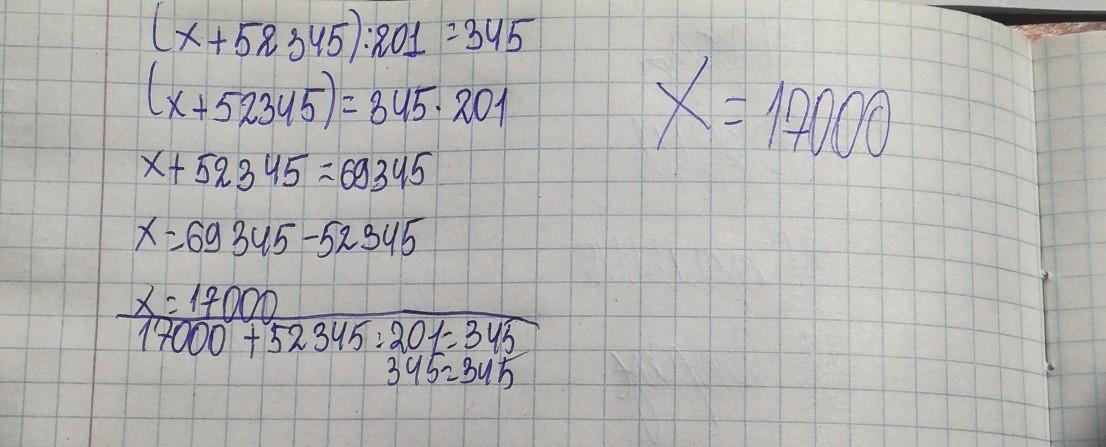 (x+52345):201=345
(x+52345)=345·201
x+52345=69345
x=69345-52345
x=17000
17000+52345:201=345
345=345
X=17000